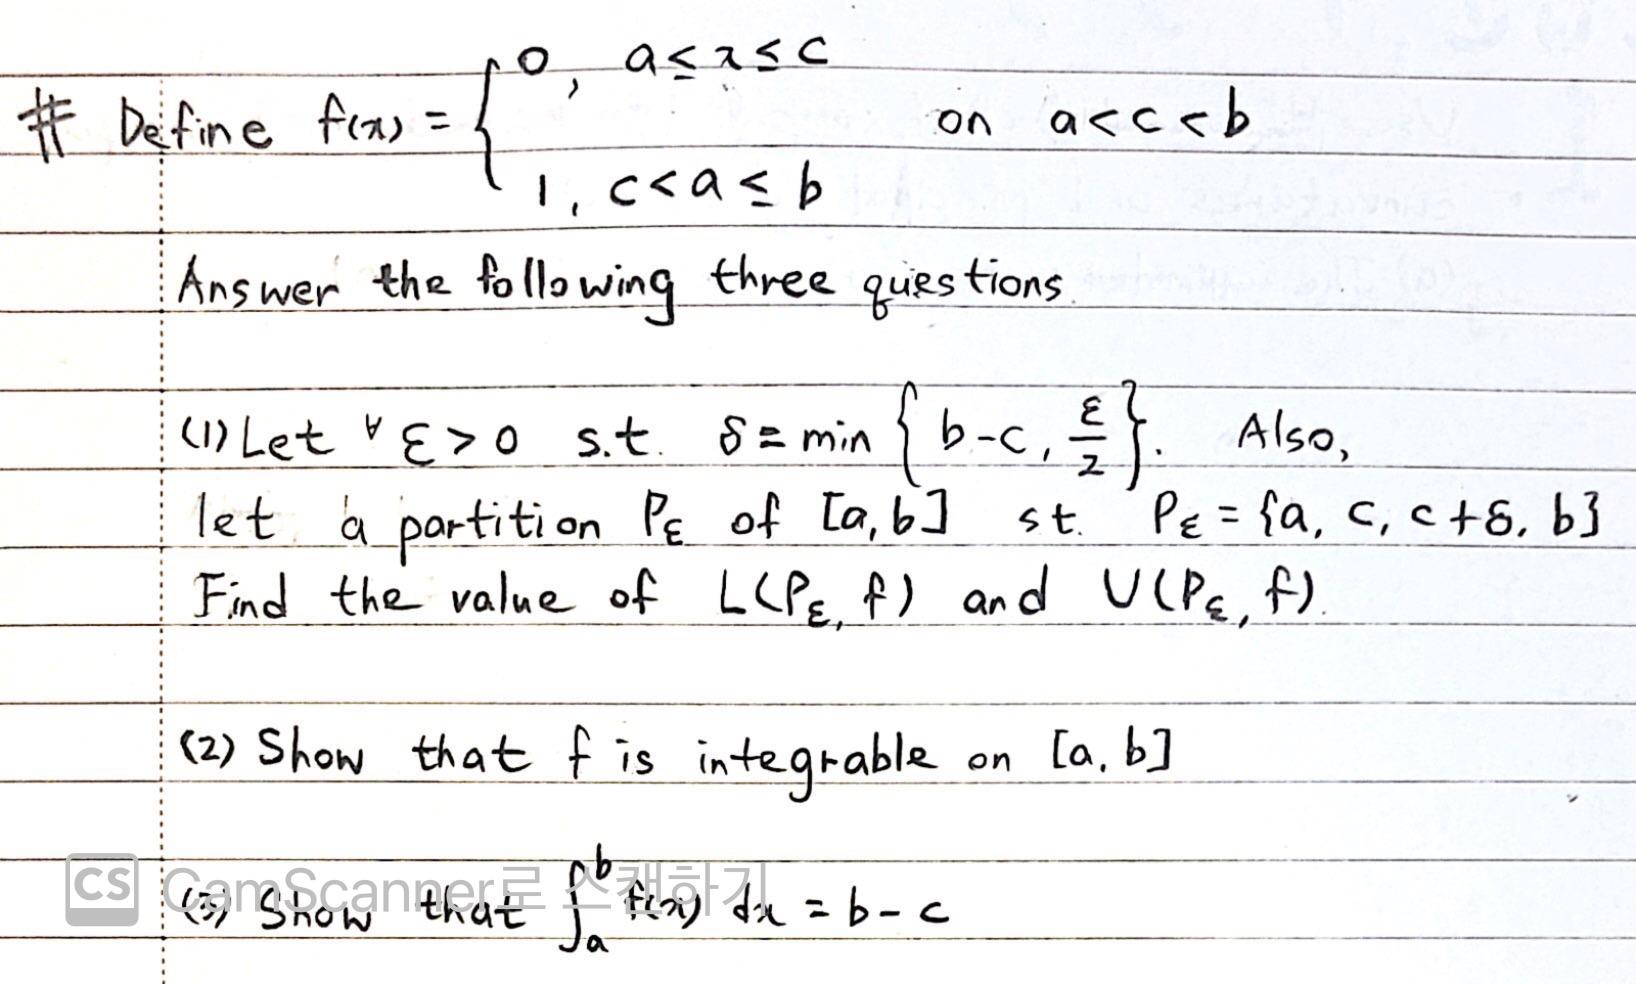 # Define f(x) = { 0, a ≤ x ≤ c
1, c < a ≤ b on a < c < b
Answer the following three questions.
(1) Let ∀ε > 0 s.t. δ = min { b-c, ε/2 }. Also,
let a partition Pε of [a, b] s.t. Pε = {a, c, c+δ, b}
Find the value of L(Pε, f) and U(Pε, f).
(2) Show that f is integrable on [a, b]
(3) Show that ∫ₐᵇ f(x) dx = b - c
CS CamScanner로 스캔하기